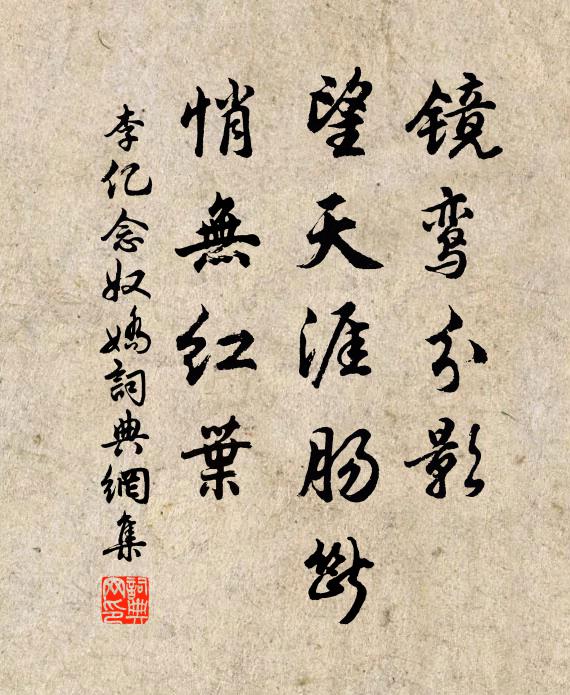 镜鸾分影
望天涯肠断
悄無红葉
李亿念奴嬌詞典網集
詞典網印